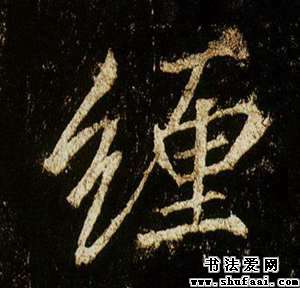 纏
书法爱网
www.shufaai.com